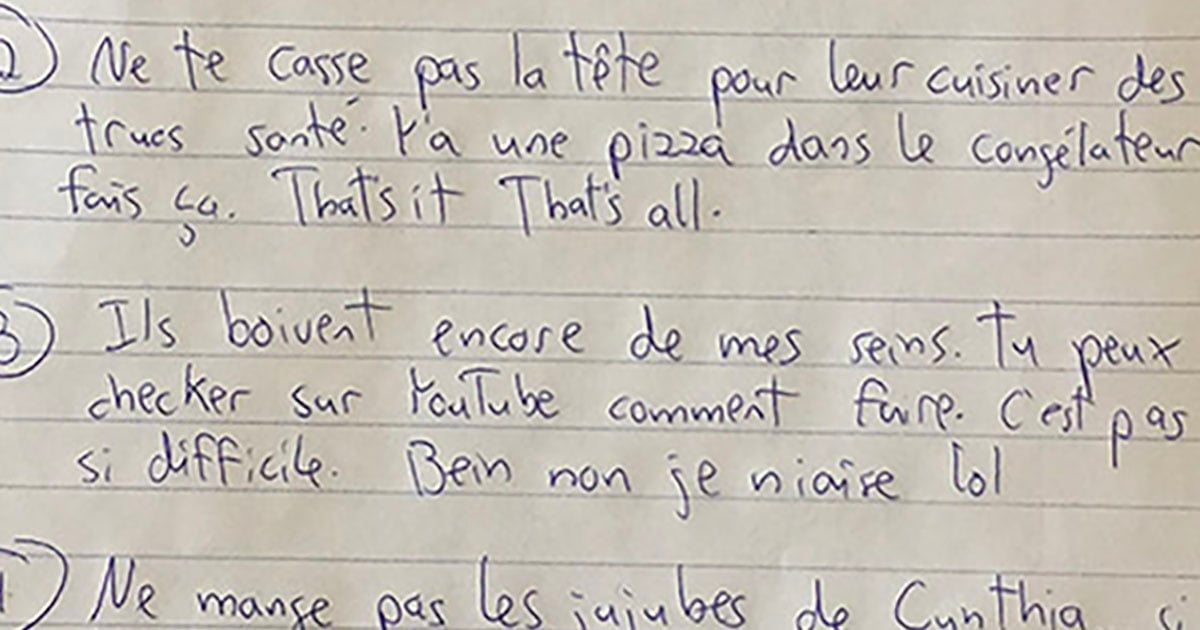 2) Ne te casse pas la tête pour leur cuisiner des
trucs santé. Y'a une pizza dans le congélateur
fais ça. That's it That's all.
3) Ils boivent encore de mes seins. Tu peux
checker sur YouTube comment faire. C'est pas
si difficile. Bein non je niaise lol
Ne mange pas les jujubes de Cynthia si